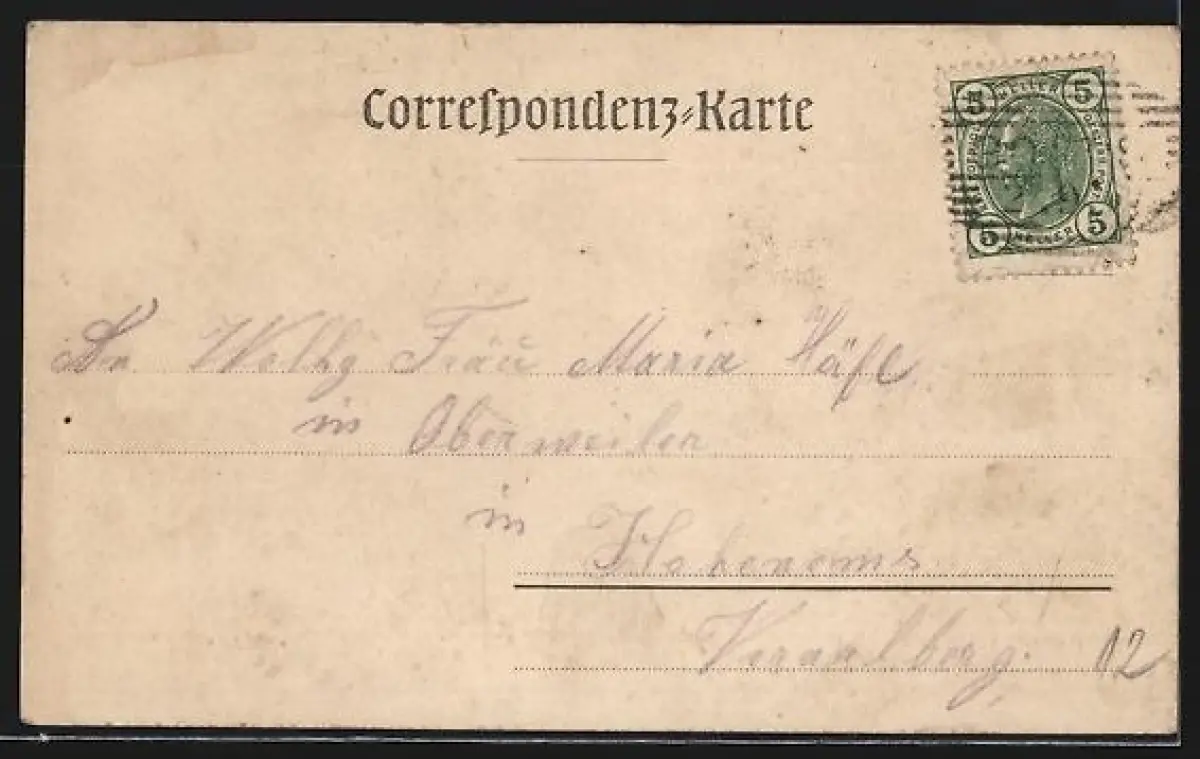 Correſpondenz-Karte
5 HELLER 5
5 HELLER 5
An Wolhg Frau Maria Häfl
in Oberweiler
in Hohenems
Vorarlberg.
12